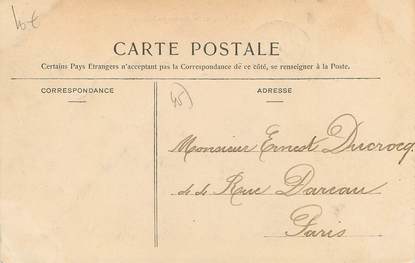 10€
CARTE POSTALE
Certains Pays Etrangers n'acceptant pas la Correspondance de ce côté, se renseigner à la Poste.
CORRESPONDANCE
ADRESSE
45)
Monsieur Ernest Ducrocq
Rue Dareau
Paris